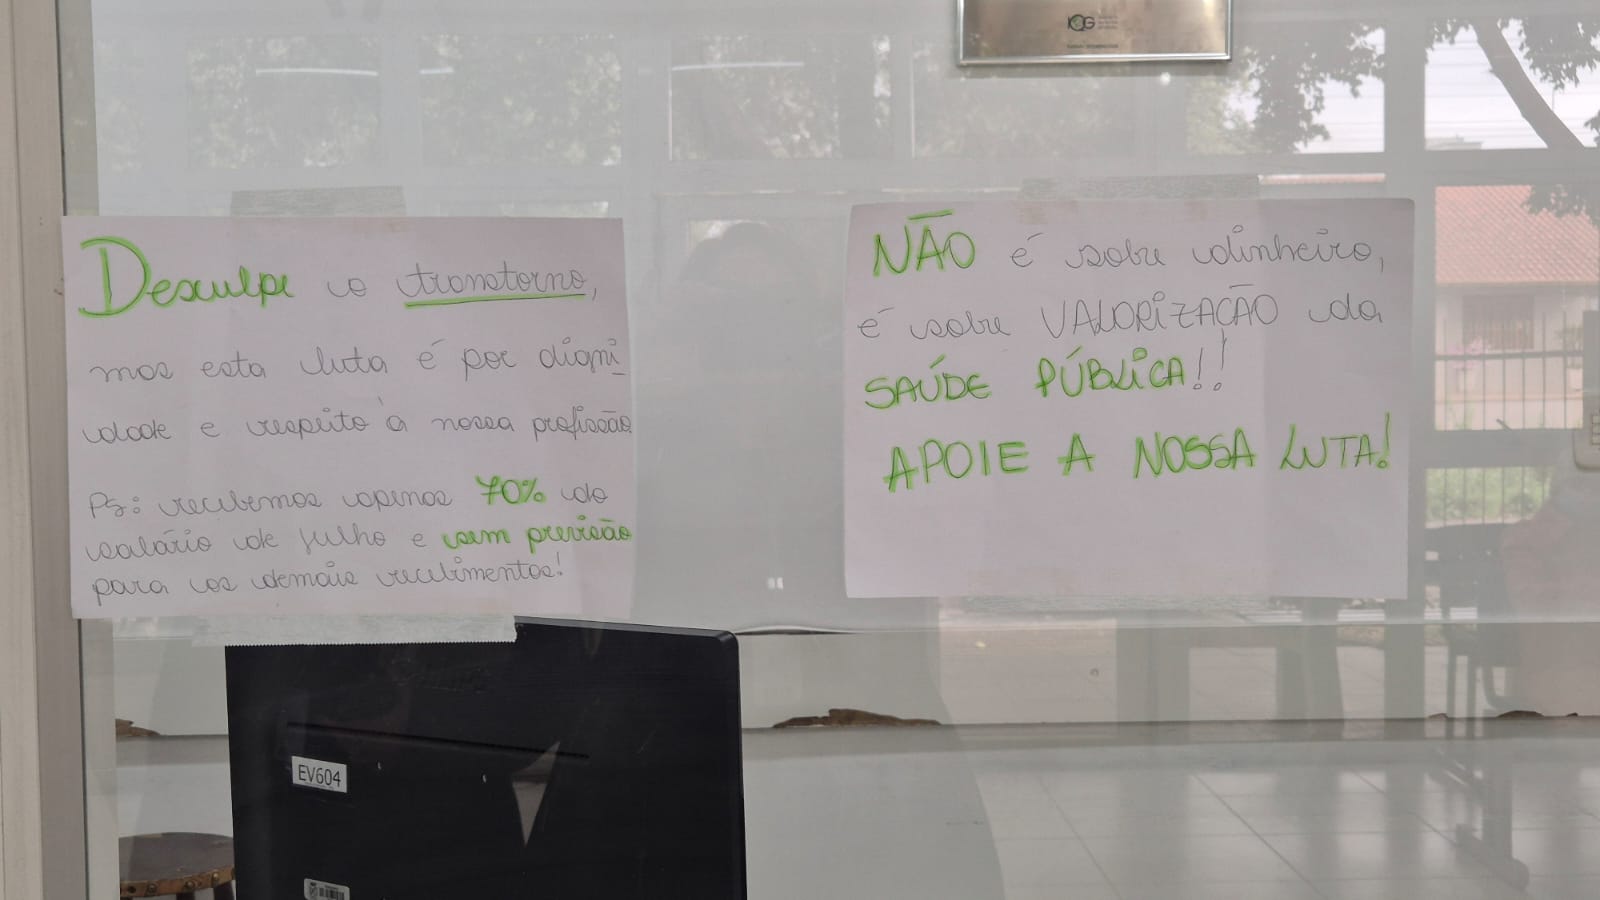 Desculpe o transtorno,
mas esta luta é por digni
dade e respeito à nossa profissão.
PS: recebemos apenas 70% do
salário de julho e sem previsão
para os demais recebimentos!
NÃO é sobre dinheiro,
é sobre VALORIZAÇÃO da
SAÚDE PÚBLICA!!
APOIE A NOSSA LUTA!
IQG
EV604